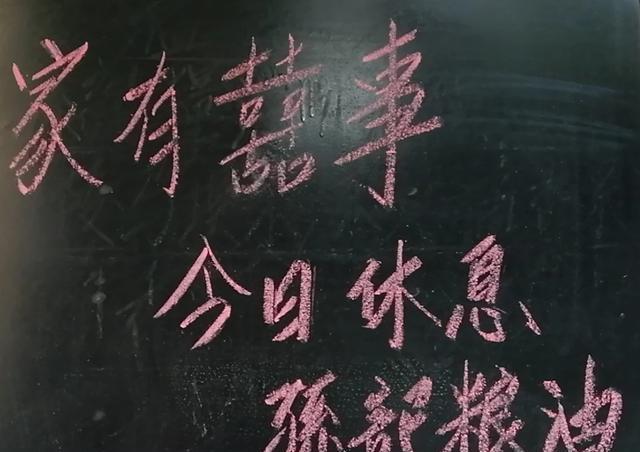 家有囍事
今日休息
孫記粮油